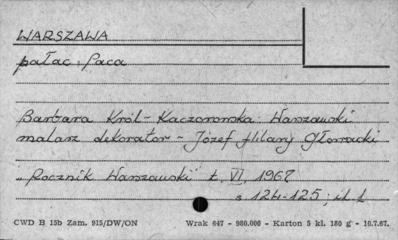 WARSZAWA
pałac Paca
Barbara Król-Kaczorowska: Warszawski
malarz dekorator - Józef Hilary Głowacki
„Rocznik Warszawski" t. VI. 1967
s 124-125; il. 1
CWD B 15b Zam. 915/DW/ON Wrak 647 - 980.000 - Karton 5 kl. 180 g - 10.7.67.